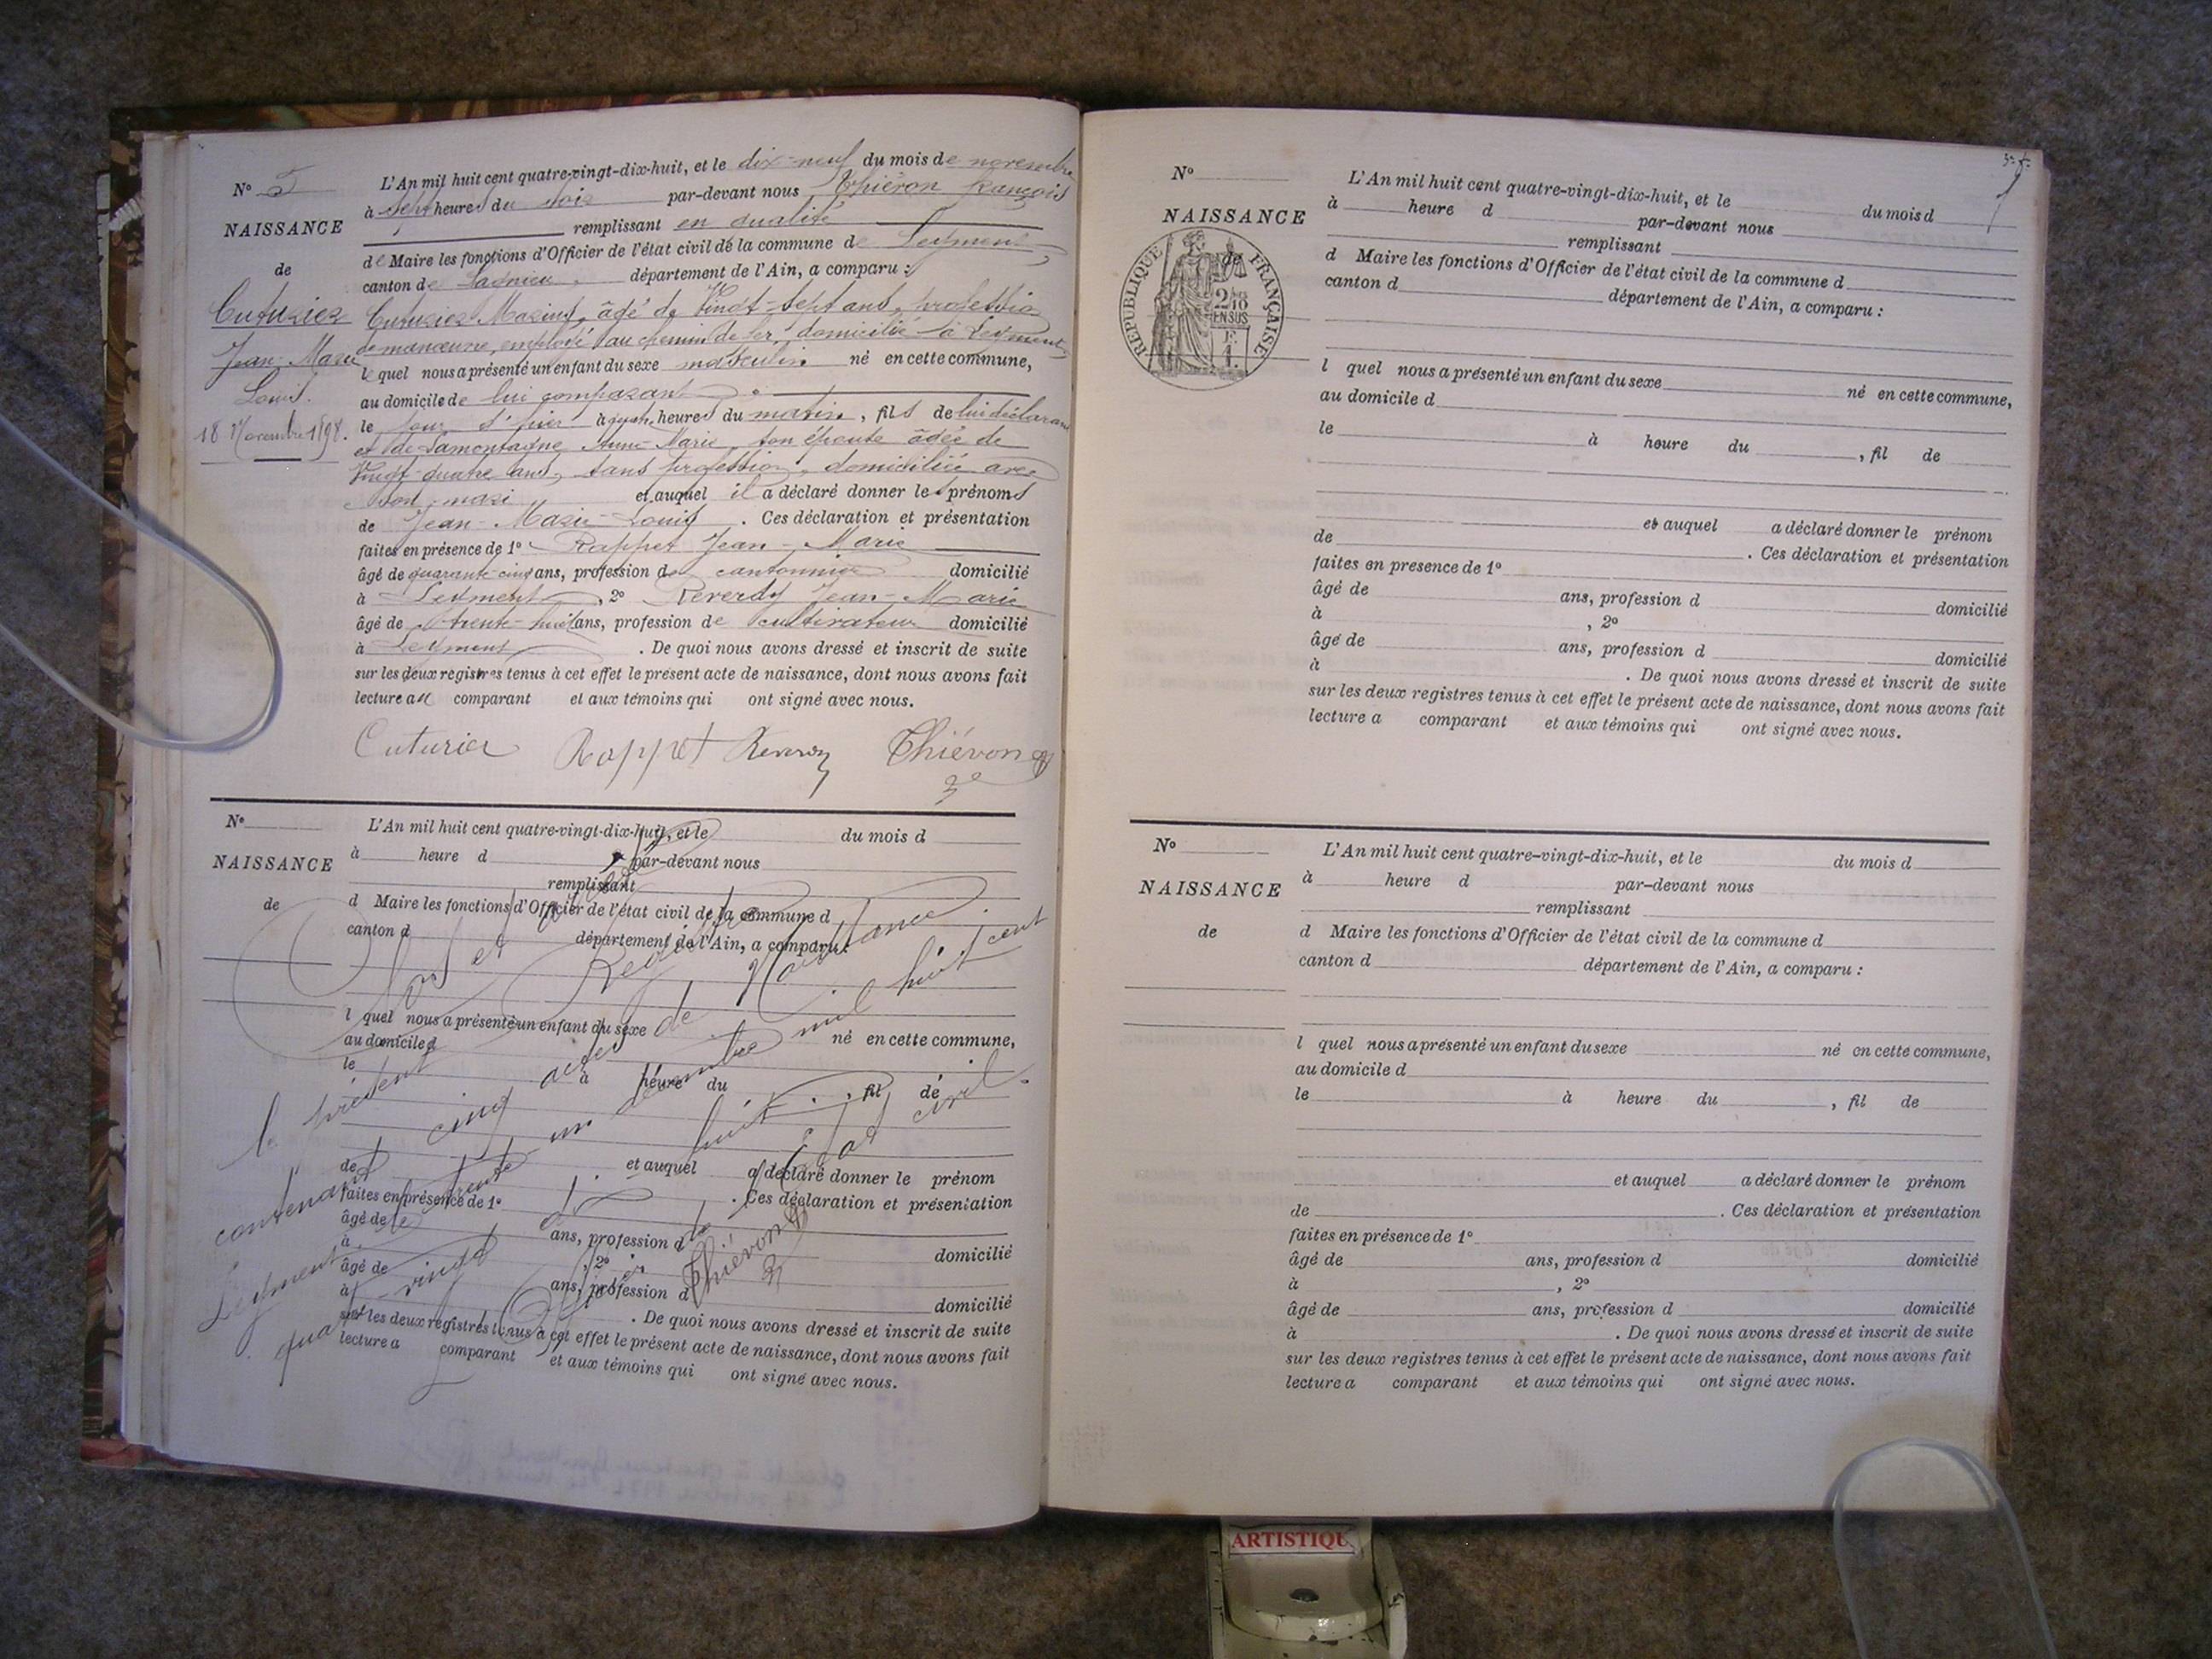 N° 5
NAISSANCE
de
Cuturier
Jean-Marie
Louis.
18 Novembre 1898.
L'An mil huit cent quatre-vingt-dix-huit, et le dix-neuf du mois de novembre
à sept heures du soir par-devant nous Thiévon François
remplissant en qualité
de Maire les fonctions d'Officier de l'état civil de la commune de Leyment
canton de Lagnieu, département de l'Ain, a comparu :
Cuturier Marius, âgé de Vingt-sept ans, profession
de manœuvre, employé au chemin de fer, domicilié à Leyment
lequel nous a présenté un enfant du sexe masculin né en cette commune,
au domicile de lui comparant
le jour d'hier à quatre heures du matin, fils de lui déclarant
et de Lamontagne Anne-Marie, son épouse âgée de
Vingt-quatre ans, sans profession, domiciliée avec
son mari et auquel il a déclaré donner les prénoms
de Jean-Marie-Louis. Ces déclaration et présentation
faites en présence de 1° Rappet Jean-Marie
âgé de quarante-cinq ans, profession de cantonnier domicilié
à Leyment, 2° Reverdy Jean-Marie
âgé de trente-huit ans, profession de cultivateur domicilié
à Leyment. De quoi nous avons dressé et inscrit de suite
sur les deux registres tenus à cet effet le présent acte de naissance, dont nous avons fait
lecture au comparant et aux témoins qui ont signé avec nous.
Cuturier Rappet Reverdy Thiévon
N°
NAISSANCE
de
L'An mil huit cent quatre-vingt-dix-huit, et le du mois d
à heure d par-devant nous
remplissant
d Maire les fonctions d'Officier de l'état civil de la commune d
canton d département de l'Ain, a comparu :
l quel nous a présenté un enfant du sexe né en cette commune,
au domicile d
le à heure du , fil de
et auquel a déclaré donner le prénom
de . Ces déclaration et présentation
faites en présence de 1°
âgé de ans, profession d domicilié
à , 2°
âgé de ans, profession d domicilié
à . De quoi nous avons dressé et inscrit de suite
sur les deux registres tenus à cet effet le présent acte de naissance, dont nous avons fait
lecture a comparant et aux témoins qui ont signé avec nous.
Clos et arrêté
le présent Registre de Naissance
contenant cinq actes de
Leyment le trente-un décembre mil huit cent
quatre-vingt-dix-huit.
L'Officier de l'Etat civil.
Thiévon
N°
NAISSANCE
de
RÉPUBLIQUE FRANÇAISE
2/10
EN SUS
F.
1.
L'An mil huit cent quatre-vingt-dix-huit, et le du mois d
à heure d par-devant nous
remplissant
d Maire les fonctions d'Officier de l'état civil de la commune d
canton d département de l'Ain, a comparu :
l quel nous a présenté un enfant du sexe né en cette commune,
au domicile d
le à heure du , fil de
et auquel a déclaré donner le prénom
de . Ces déclaration et présentation
faites en presence de 1°
âgé de ans, profession d domicilié
à , 2°
âgé de ans, profession d domicilié
à . De quoi nous avons dressé et inscrit de suite
sur les deux registres tenus à cet effet le présent acte de naissance, dont nous avons fait
lecture a comparant et aux témoins qui ont signé avec nous.
N°
NAISSANCE
de
L'An mil huit cent quatre-vingt-dix-huit, et le du mois d
à heure d par-devant nous
remplissant
d Maire les fonctions d'Officier de l'état civil de la commune d
canton d département de l'Ain, a comparu :
l quel nous a présenté un enfant du sexe né en cette commune,
au domicile d
le à heure du , fil de
et auquel a déclaré donner le prénom
de . Ces déclaration et présentation
faites en présence de 1°
âgé de ans, profession d domicilié
à , 2°
âgé de ans, profession d domicilié
à . De quoi nous avons dressé et inscrit de suite
sur les deux registres tenus à cet effet le présent acte de naissance, dont nous avons fait
lecture a comparant et aux témoins qui ont signé avec nous.
ARTISTIQU